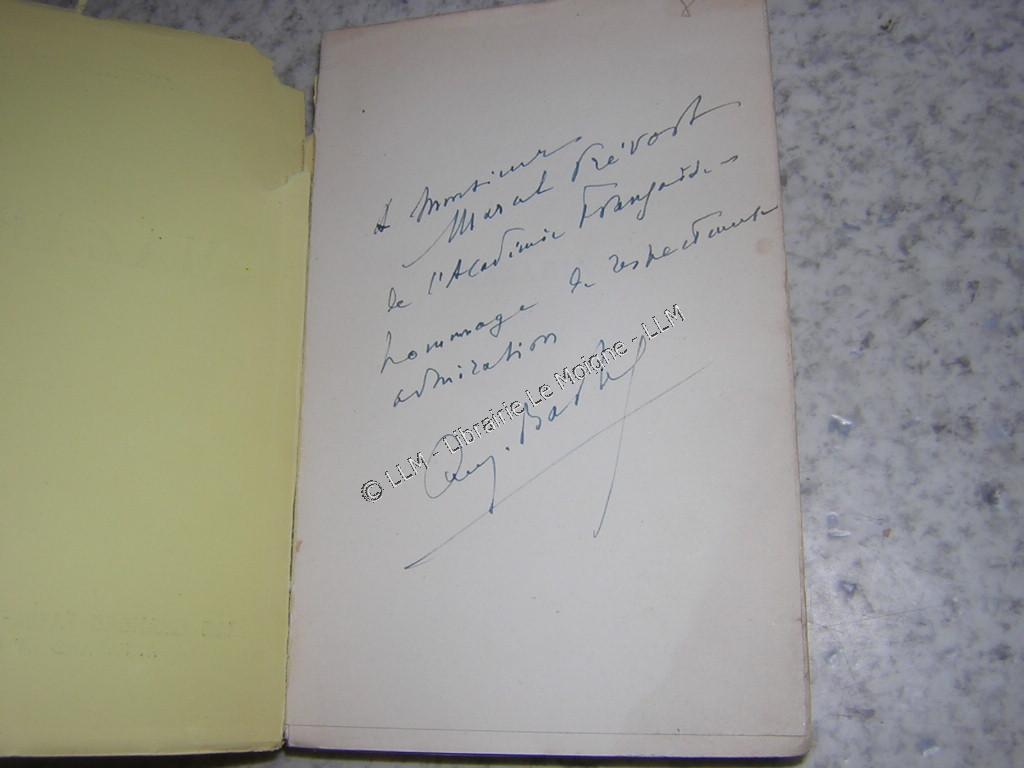 A Monsieur
Marcel Prévost
de l'Académie Française
hommage de respectueuse
admiration
© LLM - Librairie Le Moigne - LLM